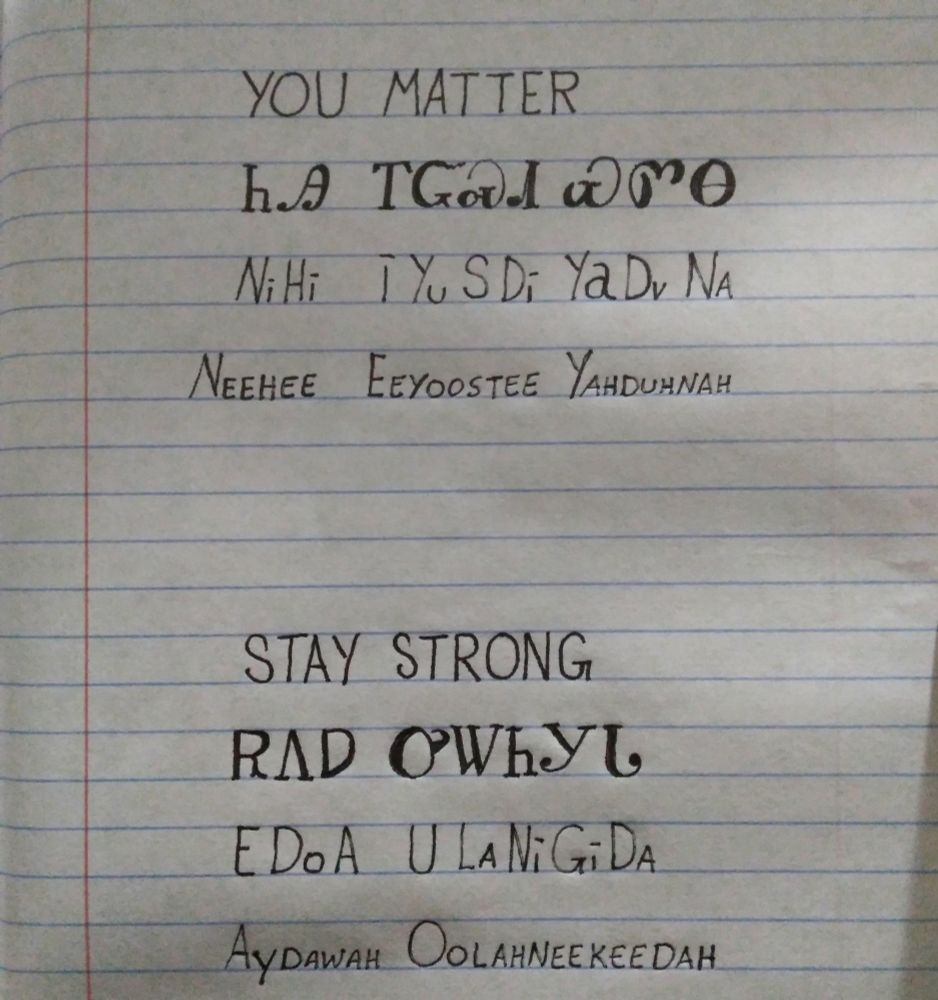 YOU MATTER
ᏂᎯ ᎢᏳᏍᏗ ᏯᏛᎾ
NiHi iYuSDi YaDvNA
NEEHEE EEYOOSTEE YAHDUHNAH
STAY STRONG
ᎡᏙᎠ ᎤᎳᏂᎩᏓ
EDoA ULANiGiDA
AYDAWAH OOLAHNEEKEEDAH